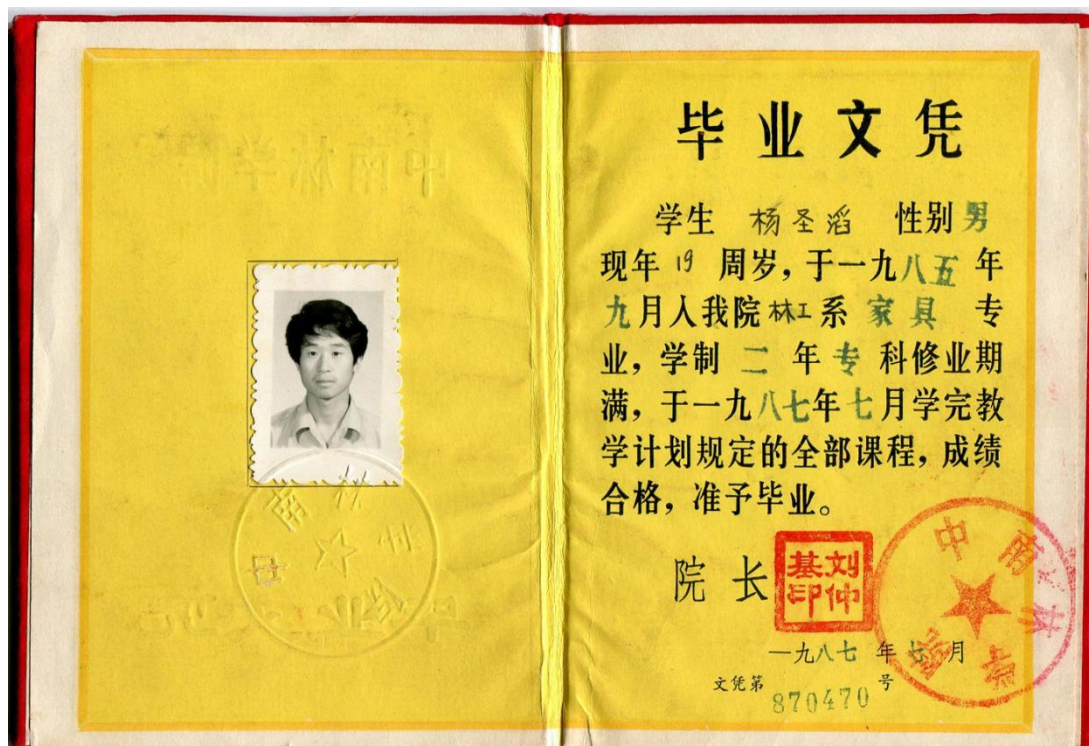 中南林学院
中南林学院
毕业文凭
学生 杨圣滔 性别 男
现年 19 周岁，于一九八五年
九月入我院林工系 家具 专
业，学制 二 年 专 科修业期
满，于一九八七年七月学完教
学计划规定的全部课程，成绩
合格，准予毕业。
院 长
刘仲
基印
中南林学院
一九八七 年 七 月
文凭第 870470 号